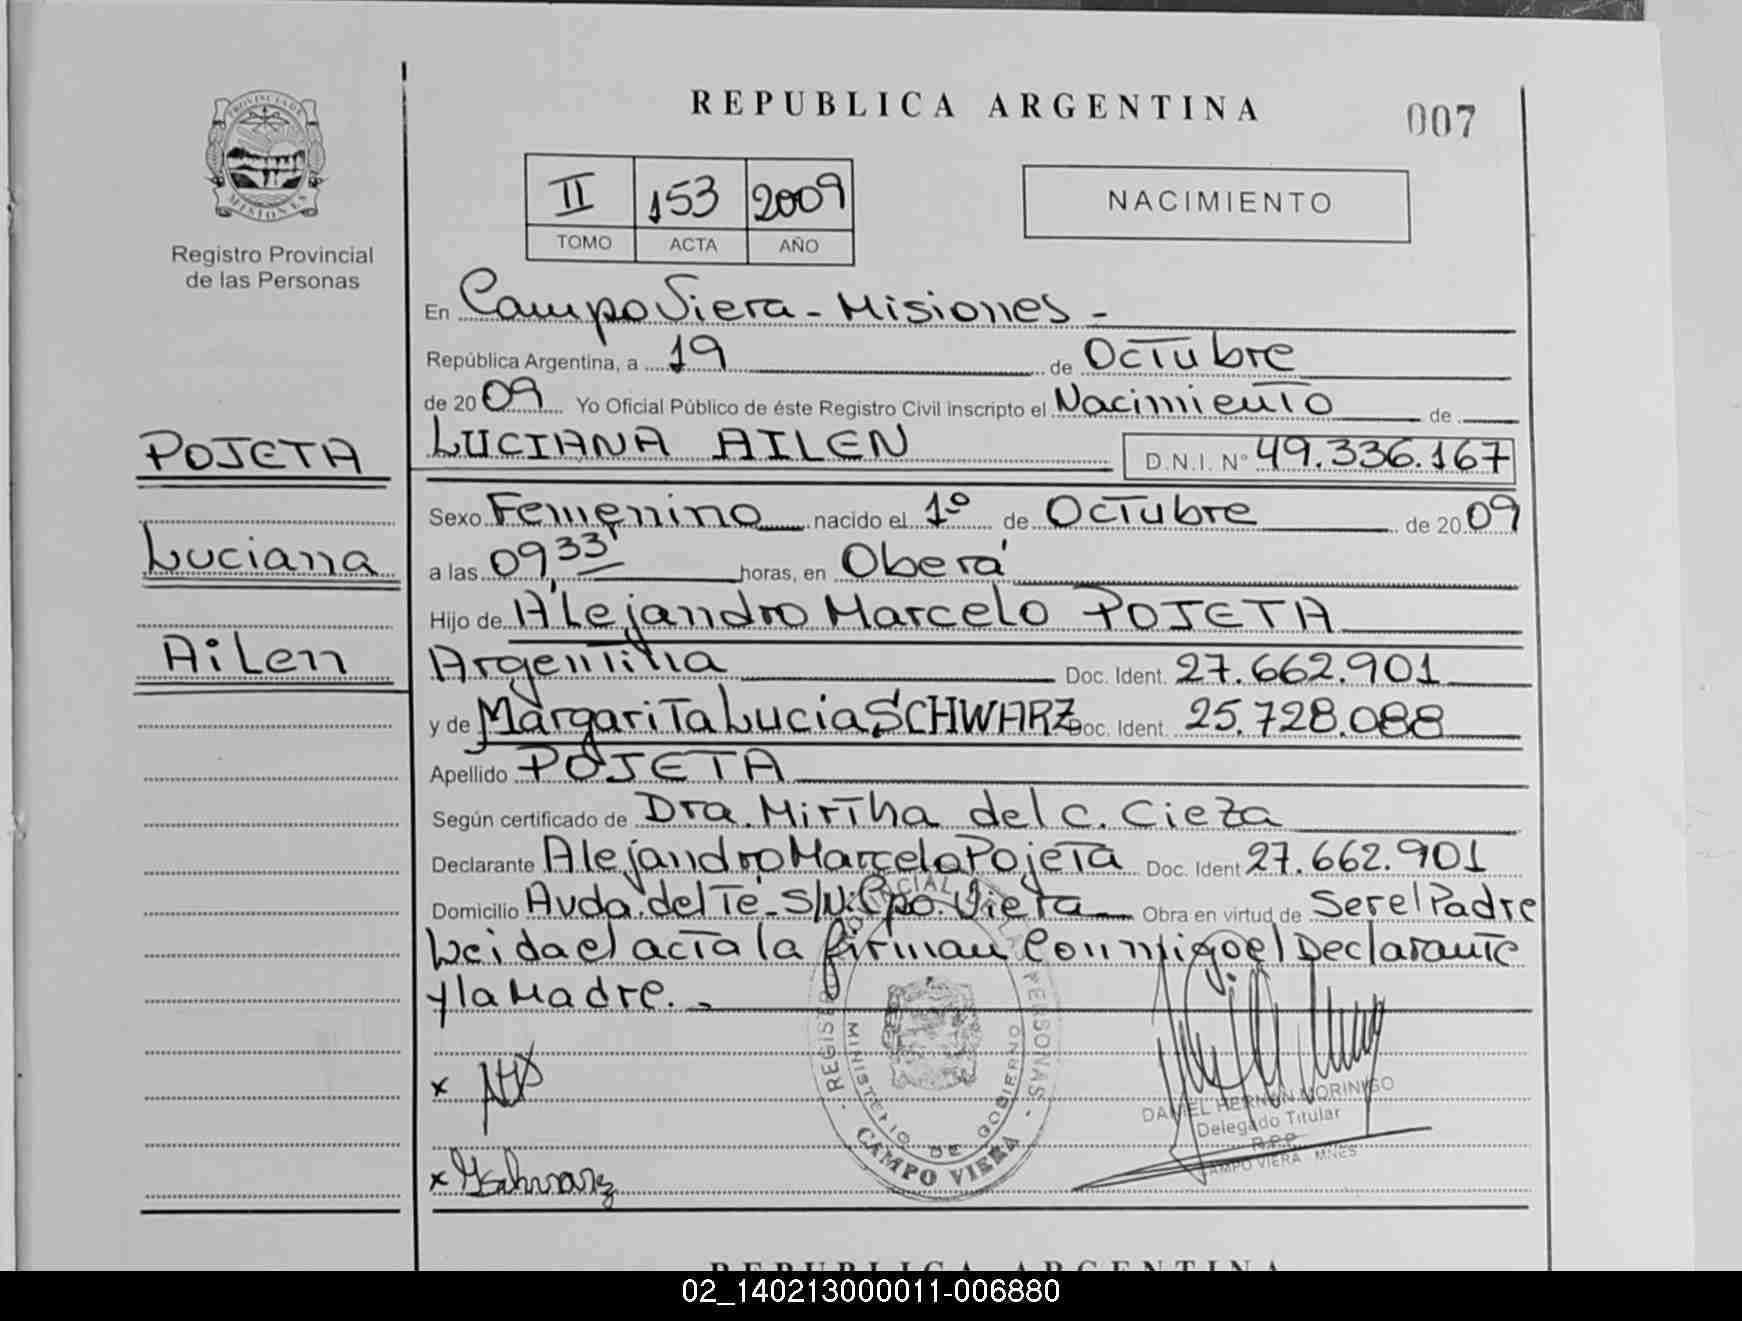 REPUBLICA ARGENTINA
007
PROVINCIA DE
MISIONES
Registro Provincial
de las Personas
II 153 2009
TOMO ACTA AÑO
NACIMIENTO
En Campo Viera - Misiones -
República Argentina, a 19 de Octubre
de 2009 Yo Oficial Público de éste Registro Civil inscripto el Nacimiento de
LUCIANA AILEN D.N.I. Nº 49.336.167
POJETA
Luciana
Ailen
Sexo Femenino nacido el 1º de Octubre de 2009
a las 09,33' horas, en Oberá
Hijo de Alejandro Marcelo POJETA
Argentina Doc. Ident. 27.662.901
y de Margarita Lucia SCHWARZ Doc. Ident. 25.728.088
Apellido POJETA
Según certificado de Dra. Mirtha del C. Cieza
Declarante Alejandro Marcelo Pojeta Doc. Ident 27.662.901
Domicilio Avda. del Té - S/N. Cpo. Viera Obra en virtud de Ser el Padre
Leida el acta la firman conmigo el Declarante
y la Madre. -
x
x MSchwarz
MINISTERIO DE GOBIERNO
CAMPO VIERA
DANIEL HERNAN MORINIGO
Delegado Titular
R.P.P.
CAMPO VIERA MNES
REPUBLICA ARGENTINA
02_140213000011-006880